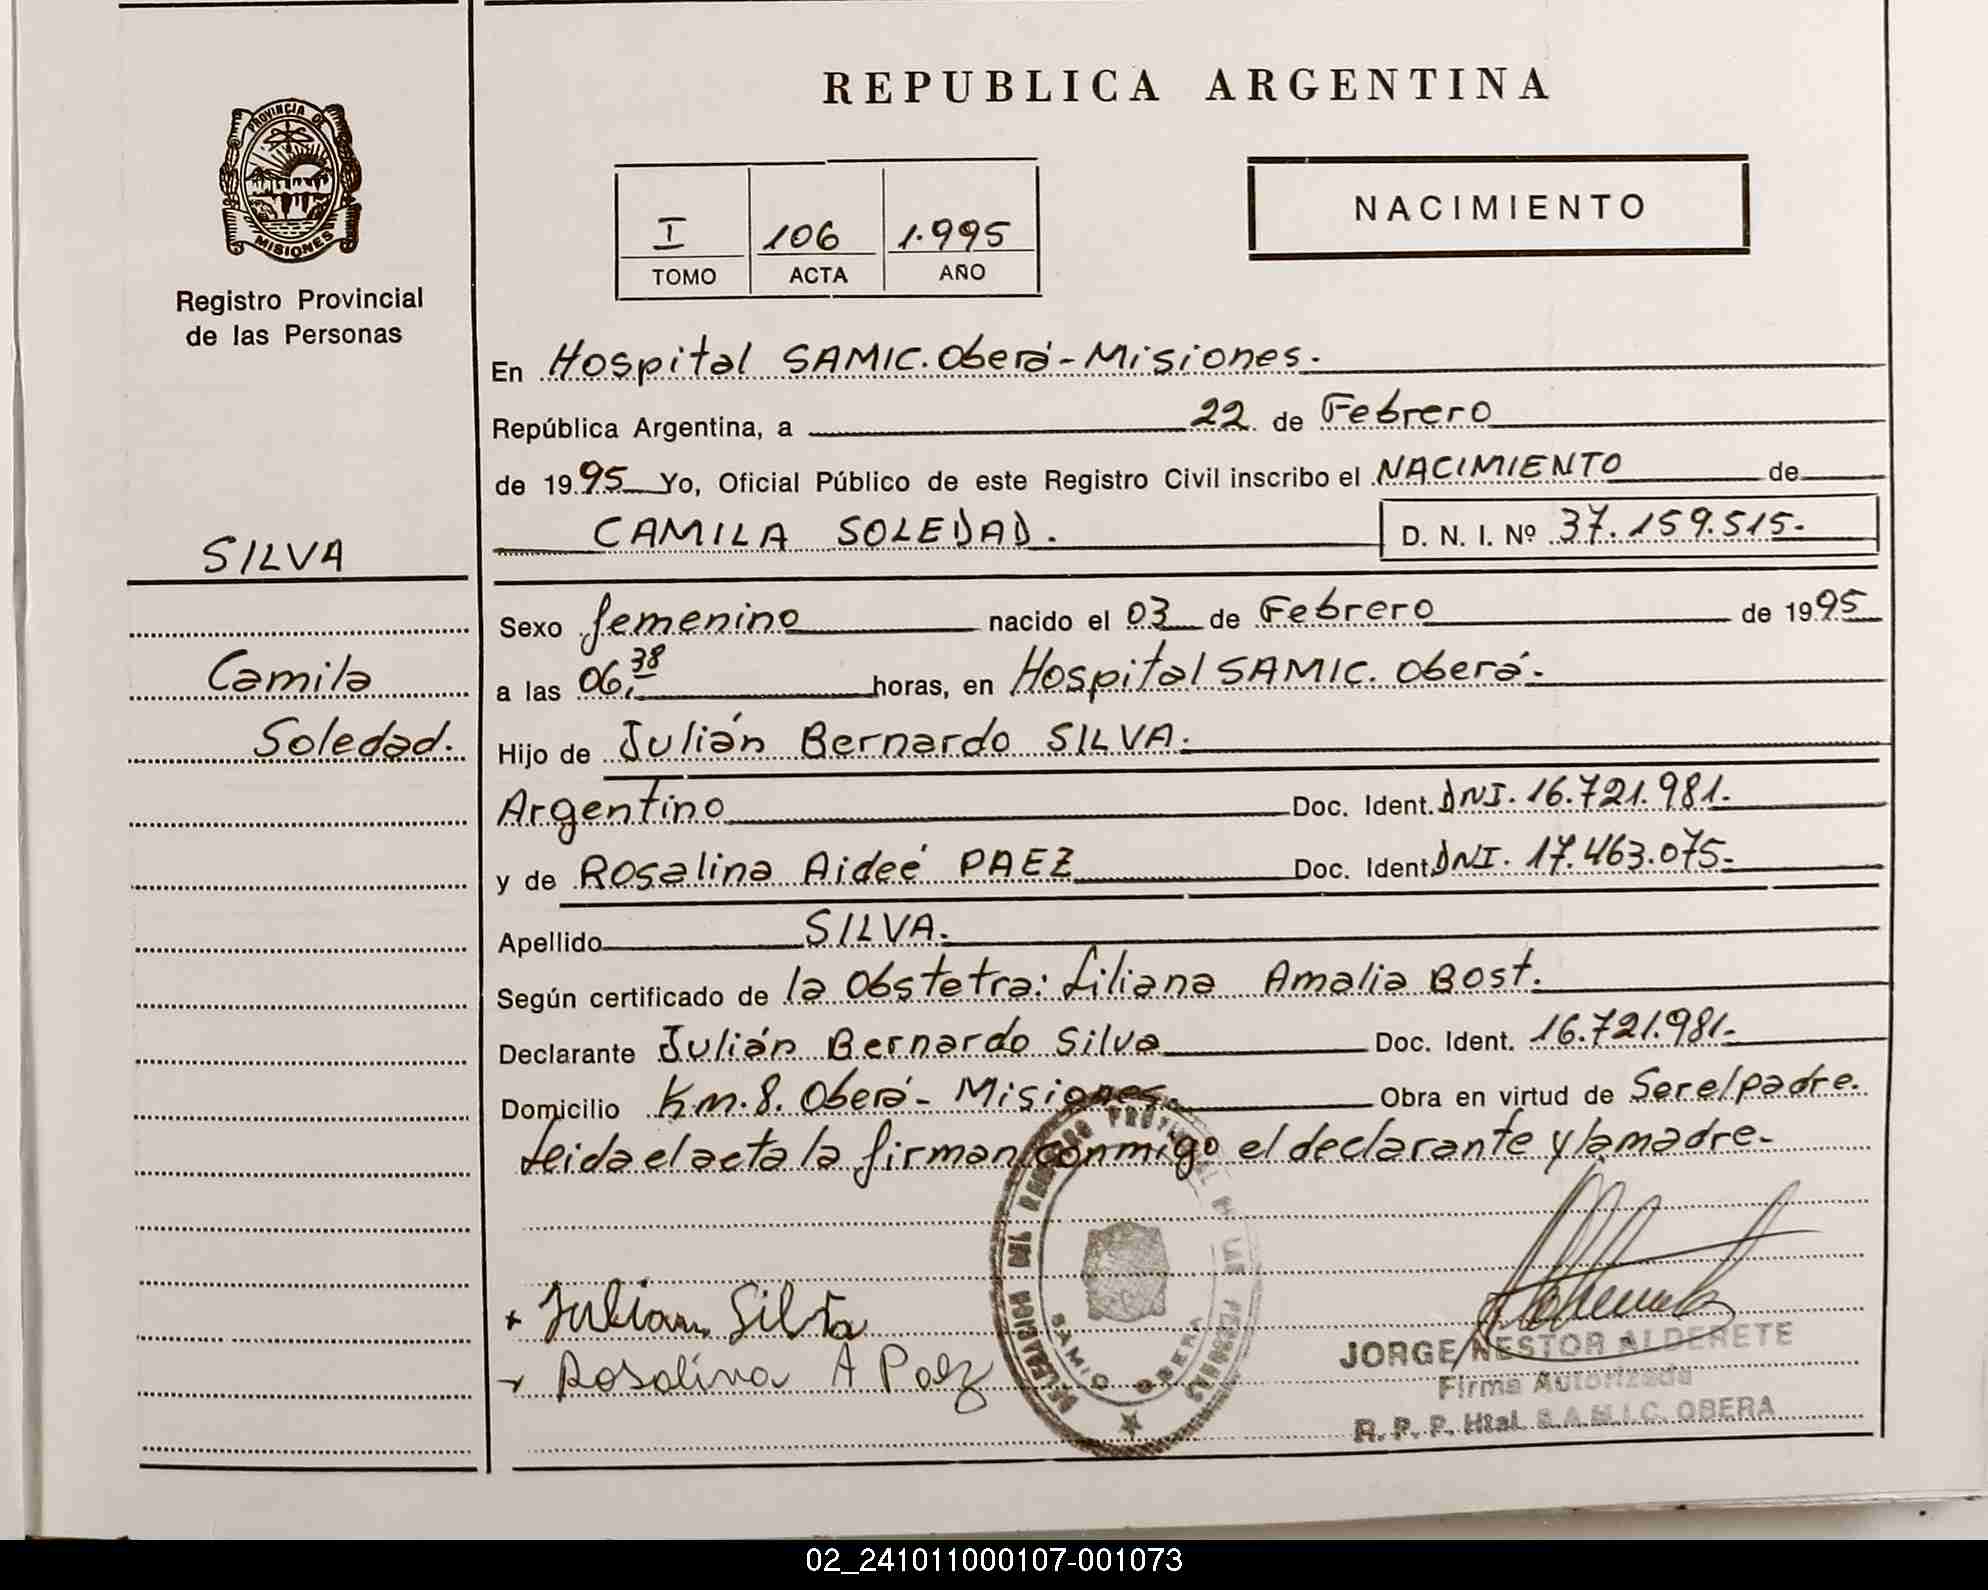 REPUBLICA ARGENTINA
PROVINCIA DE
MISIONES
Registro Provincial
de las Personas
I 106 1.995
TOMO ACTA AÑO
NACIMIENTO
En Hospital SAMIC. Oberá - Misiones.
República Argentina, a 22 de Febrero
de 1995 Yo, Oficial Público de este Registro Civil inscribo el NACIMIENTO de
CAMILA SOLEDAD. D. N. I. Nº 37.159.515-
SILVA
Camila
Soledad.
Sexo femenino nacido el 03 de Febrero de 1995
a las 06,38 horas, en Hospital SAMIC. Oberá-
Hijo de Julián Bernardo SILVA.
Argentino Doc. Ident. DNI. 16.721.981.
y de Rosalina Aideé PAEZ Doc. Ident. DNI. 17.463.075-
Apellido SILVA.
Según certificado de la Obstetra: Liliana Amalia Bost.
Declarante Julián Bernardo Silva Doc. Ident. 16.721.981-
Domicilio Km. 8. Oberá - Misiones. Obra en virtud de Ser el padre.
Leida el acta la firman conmigo el declarante y la madre-
Julian Silva
Rosalina A Paez
DELEGACION DEL REGISTRO PROVINCIAL DE LAS PERSONAS
SAMIC OBERA
JORGE NESTOR ALDERETE
Firma Autorizada
R. P. P. Htal. S.A.M.I.C. OBERA
02_241011000107-001073